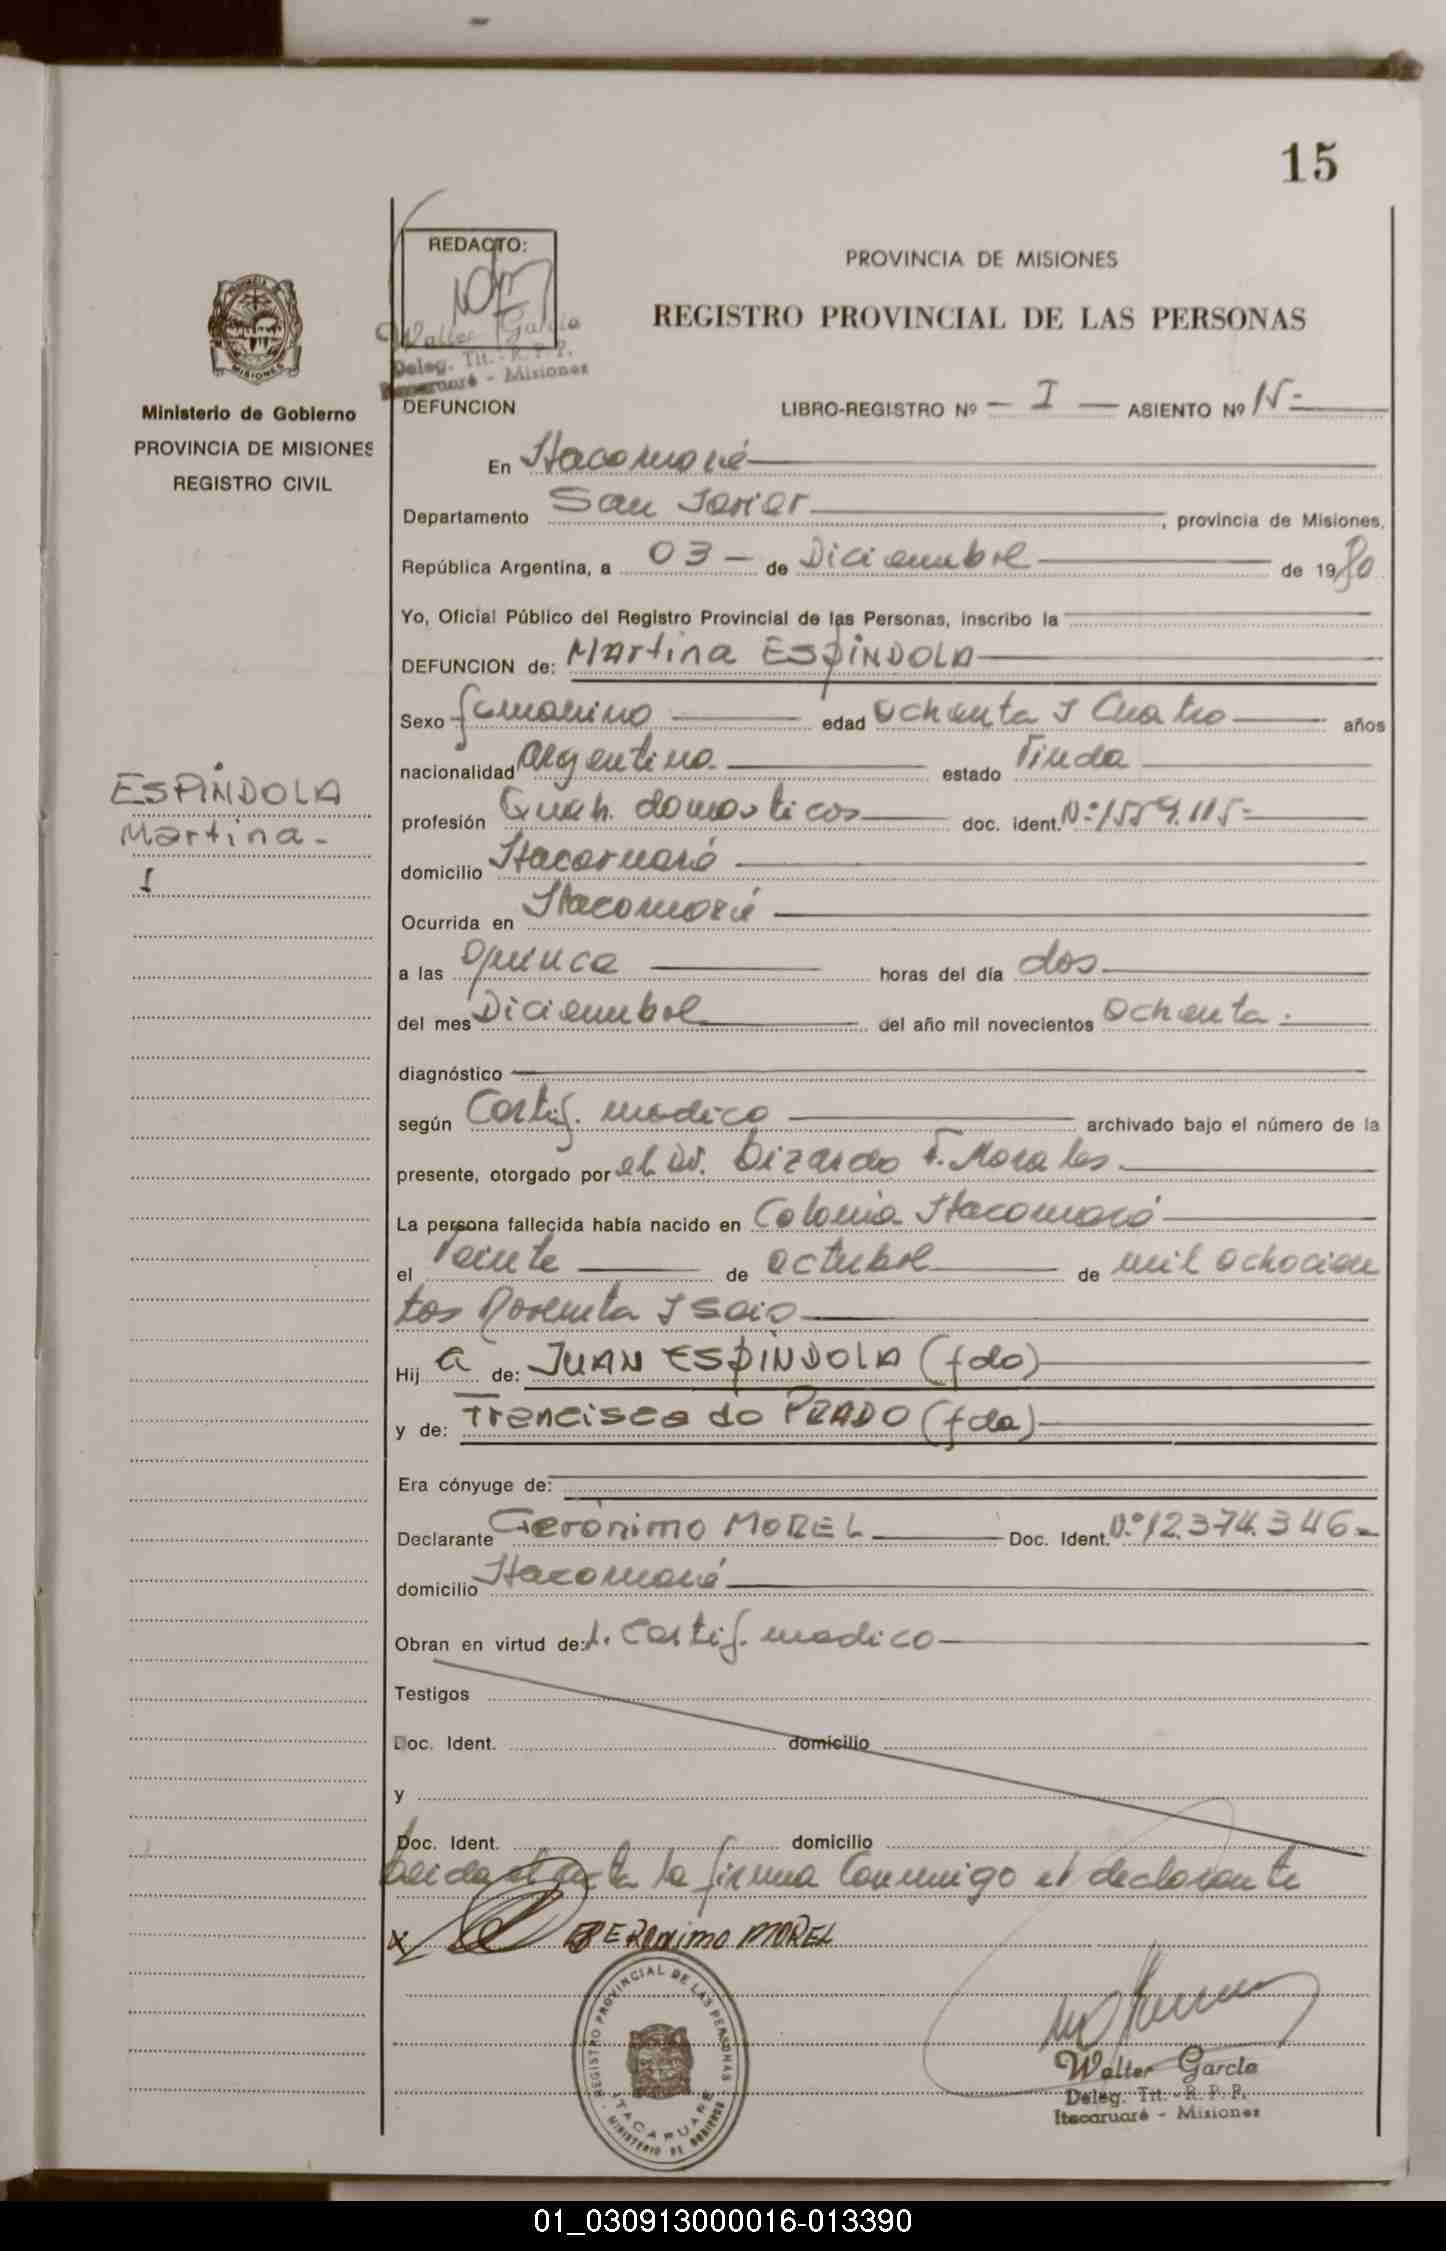 15
REDACTO:
Walter García
Deleg. Tit. - R. P. P.
Itacaruaré - Misiones
PROVINCIA DE MISIONES
REGISTRO PROVINCIAL DE LAS PERSONAS
Ministerio de Gobierno
PROVINCIA DE MISIONES
REGISTRO CIVIL
DEFUNCION LIBRO-REGISTRO Nº - I - ASIENTO Nº 15-
En Itacaruaré
Departamento San Javier, provincia de Misiones,
República Argentina, a 03 - de Diciembre de 1980
Yo, Oficial Público del Registro Provincial de las Personas, inscribo la
DEFUNCION de: Martina ESPÍNDOLA
Sexo femenino edad Ochenta y Cuatro años
nacionalidad Argentina estado Viuda
ESPÍNDOLA
Martina -
profesión Queh. domesticos doc. ident. Nº 1559.115-
domicilio Itacaruaré
Ocurrida en Itacaruaré
a las quince horas del día dos
del mes Diciembre del año mil novecientos Ochenta.
diagnóstico
según Certif. medico archivado bajo el número de la
presente, otorgado por el Dr. Dizardo F. Morales
La persona fallecida había nacido en Colonia Itacaruaré
el Veinte de octubre de mil ochocien
tos Noventa y Seis
Hij a de: JUAN ESPÍNDOLA (fdo)
y de: Francisca do PRADO (fda)
Era cónyuge de:
Declarante Gerónimo MOREL Doc. Ident. Nº 12.374.346-
domicilio Itacaruaré
Obran en virtud de: 1. Certif. medico
Testigos
Doc. Ident. domicilio
y
Doc. Ident. domicilio
Leida el acta la firma Conmigo el declarante
X GERONIMO MOREL
REGISTRO PROVINCIAL DE LAS PERSONAS
ITACARUARE
MINISTERIO DE GOBIERNO
Walter García
Deleg. Tit. - R. P. P.
Itacaruaré - Misiones
01_030913000016-013390